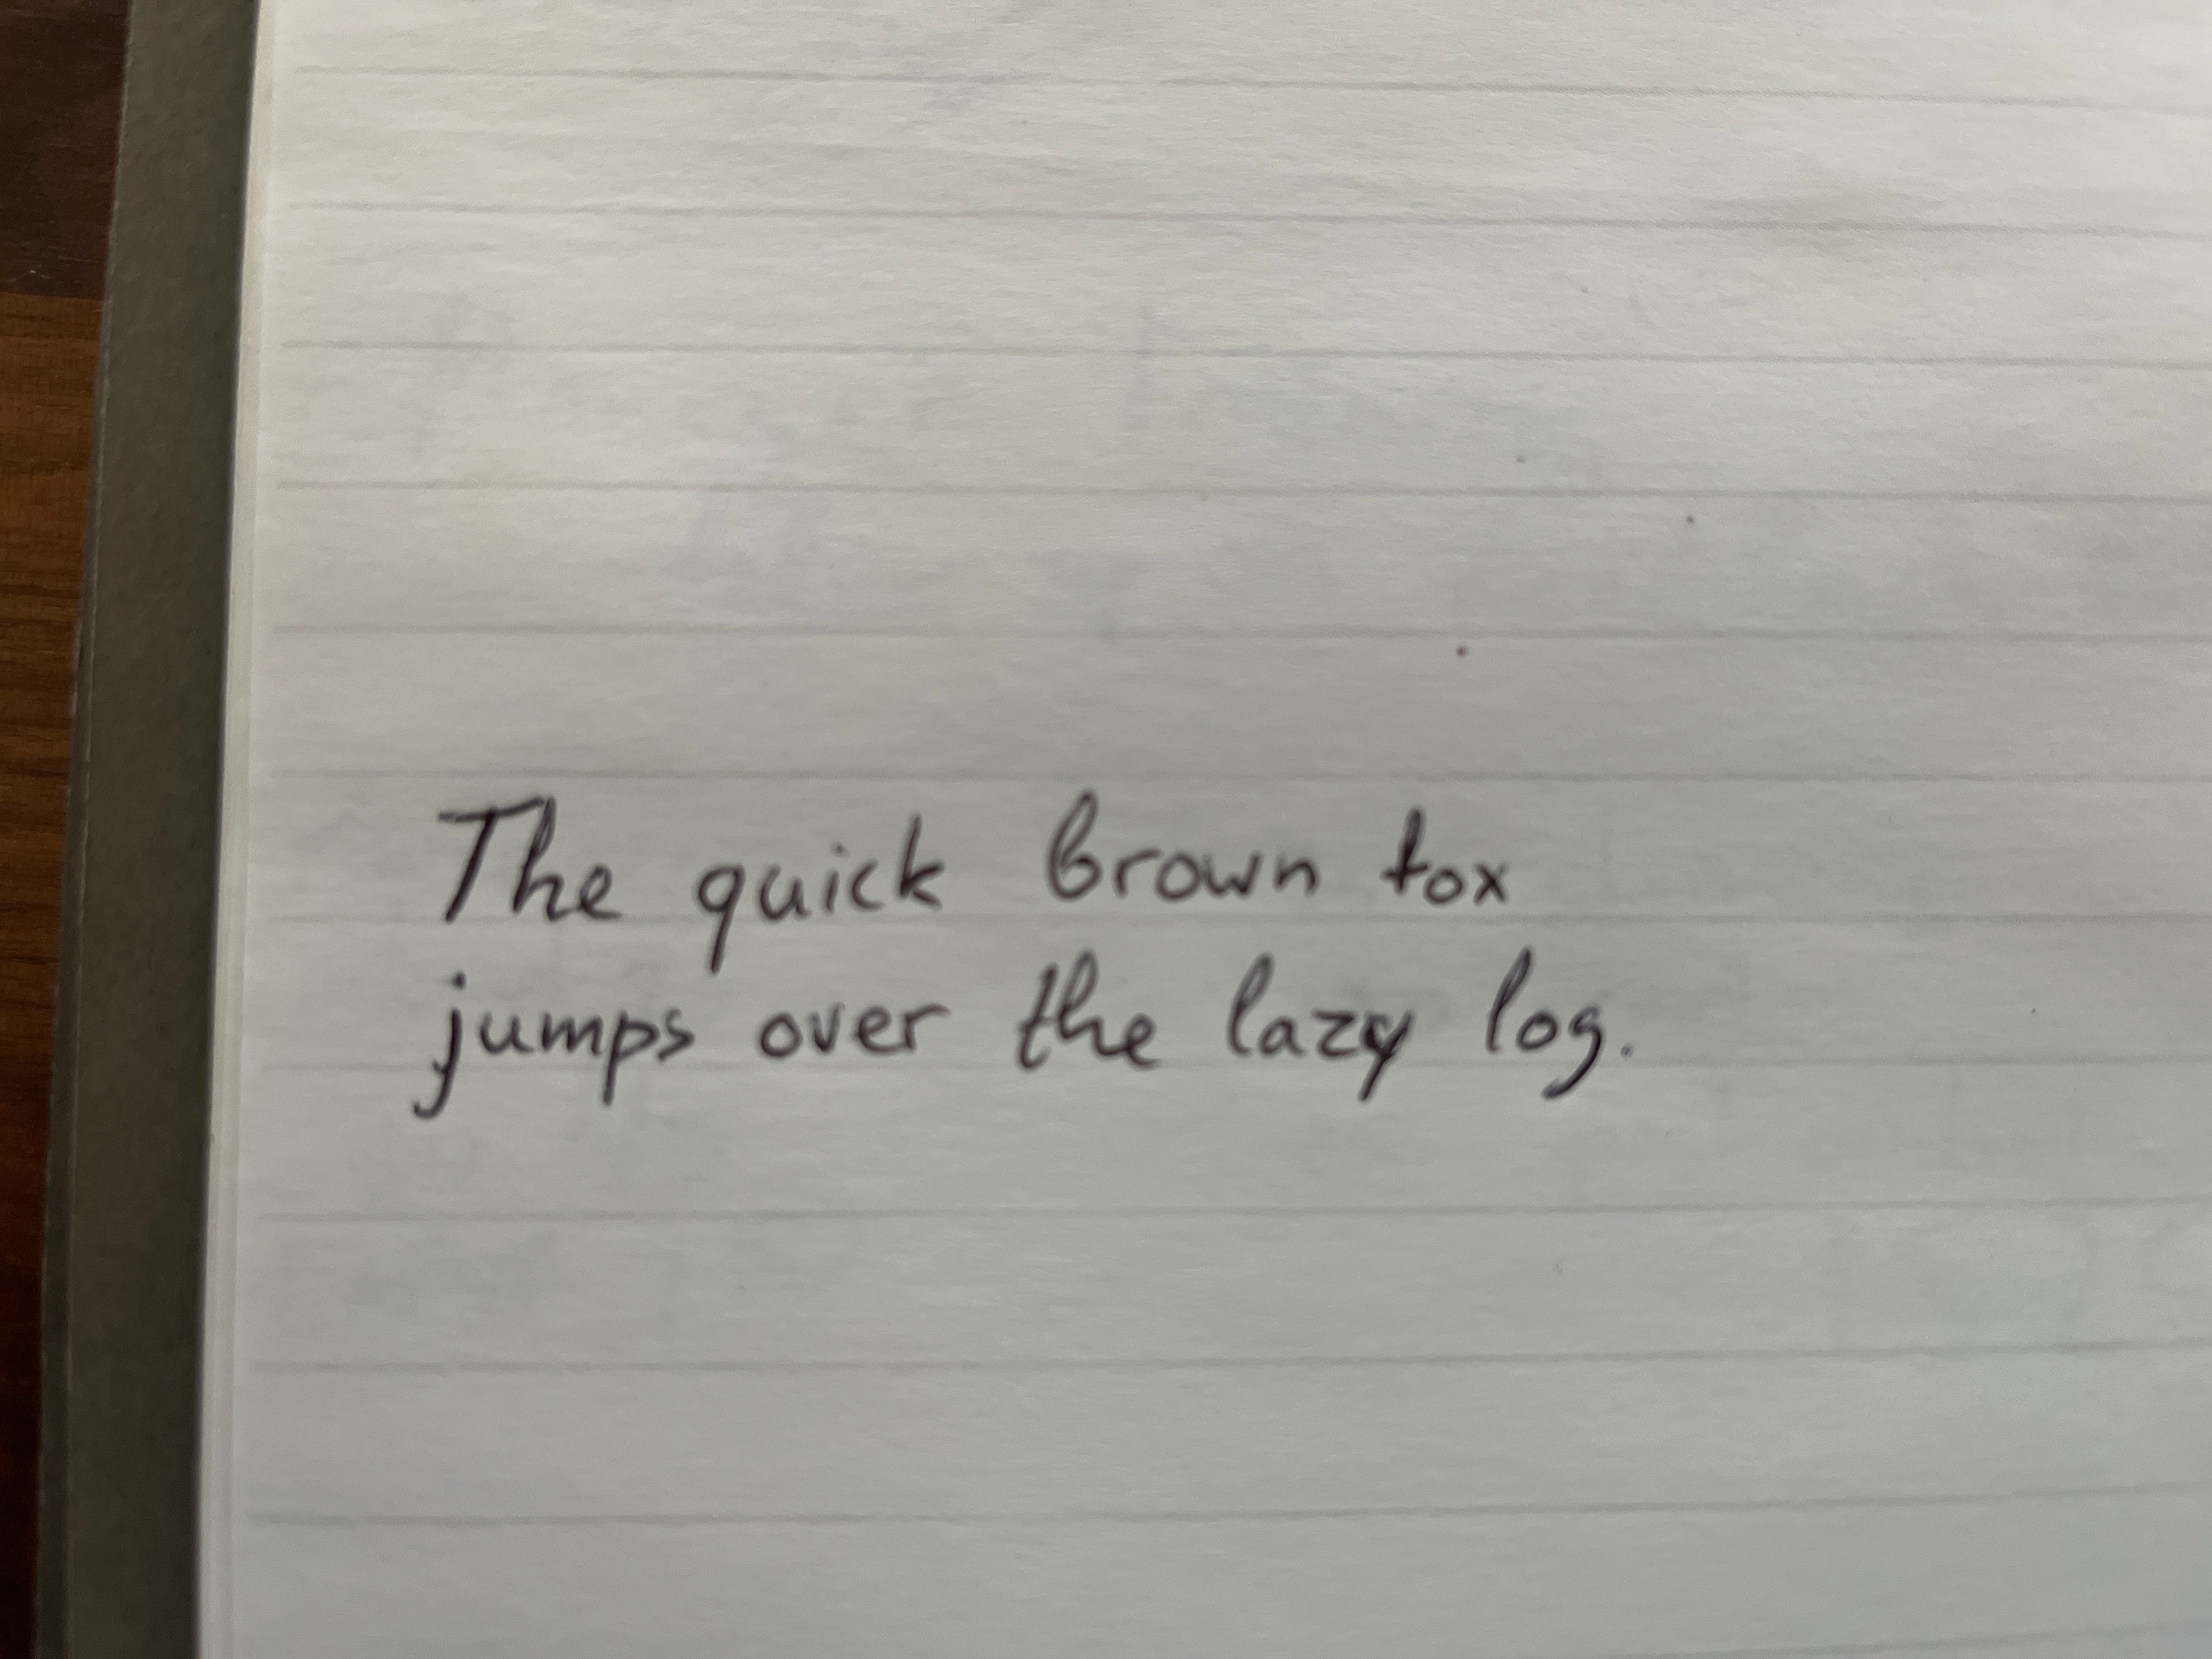 The quick brown tox
jumps over the lazy log.